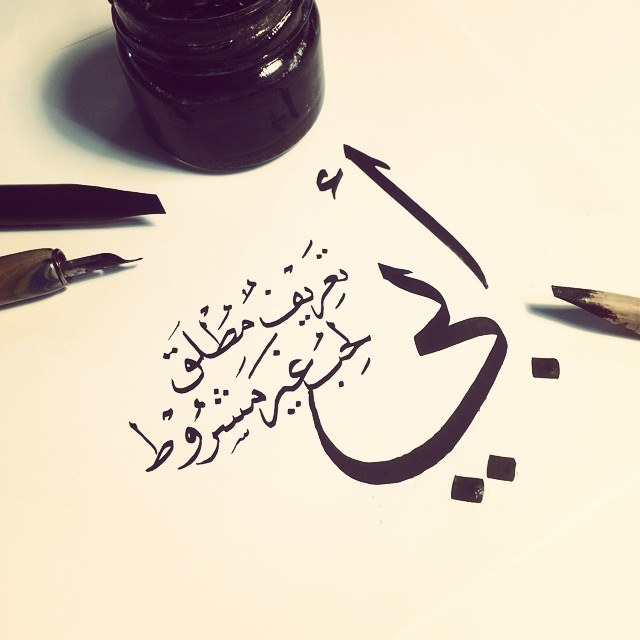 أبي
تَعْرِيفٌ مُطْلَق
لِحُبٍ غَيرَ مَشْرُوْط